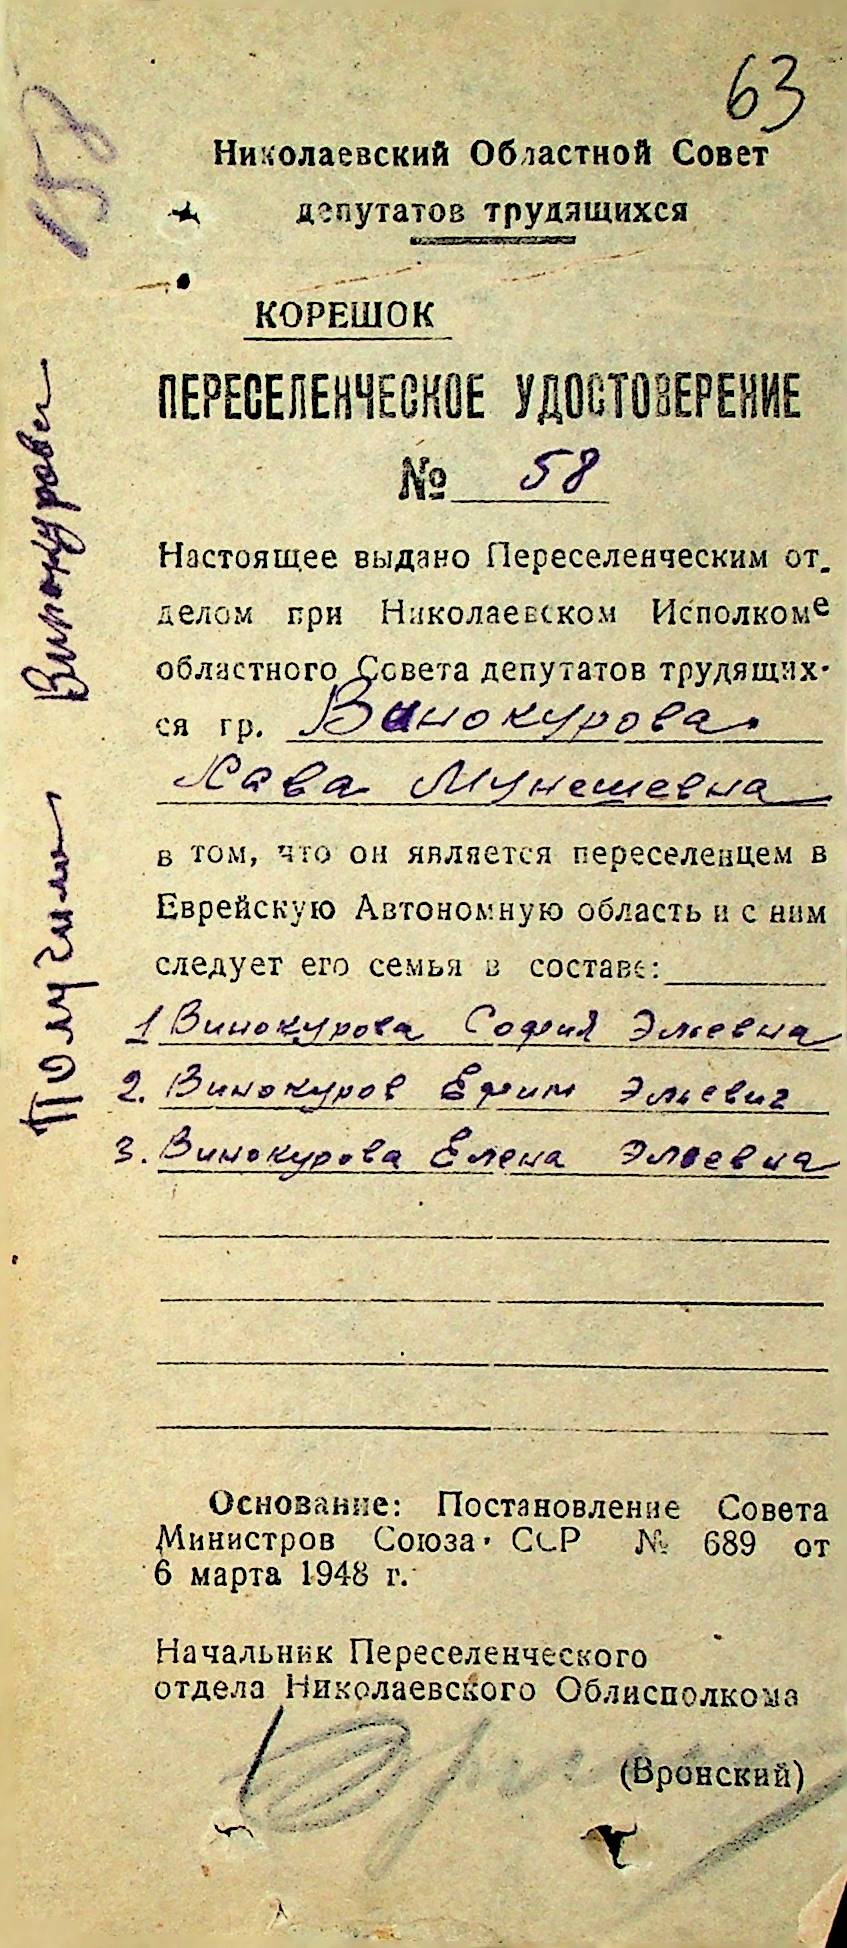 63
158
Николаевский Областной Совет
депутатов трудящихся
КОРЕШОК
ПЕРЕСЕЛЕНЧЕСКОЕ УДОСТОВЕРЕНИЕ
№ 58
Настоящее выдано Переселенческим от-
делом при Николаевском Исполкоме
областного Совета депутатов трудящих-
ся гр. Винокурова
Хава Мунешевна
в том, что он является переселенцем в
Еврейскую Автономную область и с ним
следует его семья в составе:
1 Винокурова София Эльевна
2. Винокуров Ефим Эльевич
3. Винокурова Елена Эльевна
Основание: Постановление Совета
Министров Союза ССР № 689 от
6 марта 1948 г.
Начальник Переселенческого
отдела Николаевского Облисполкома
(Вронский)
Получил Винокуров